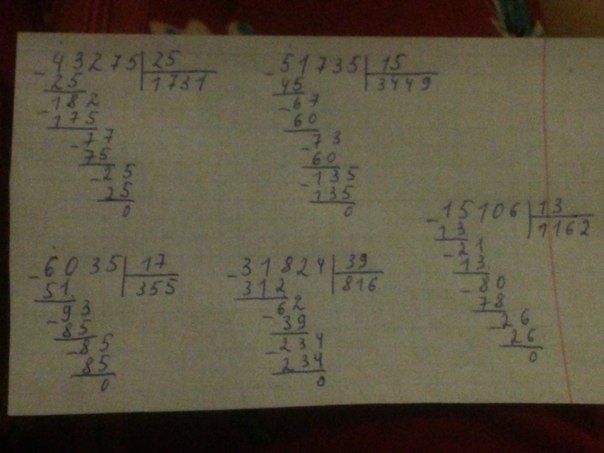 - 43275 | 25
25 | 1731
- 182
175
- 77
75
- 25
25
0
- 51735 | 15
45 | 3449
- 67
60
- 73
60
- 135
135
0
- 6035 | 17
51 | 355
- 93
85
- 85
85
0
- 31824 | 39
312 | 816
- 62
39
- 234
234
0
- 15106 | 13
13 | 1162
- 21
13
- 80
78
- 26
26
0